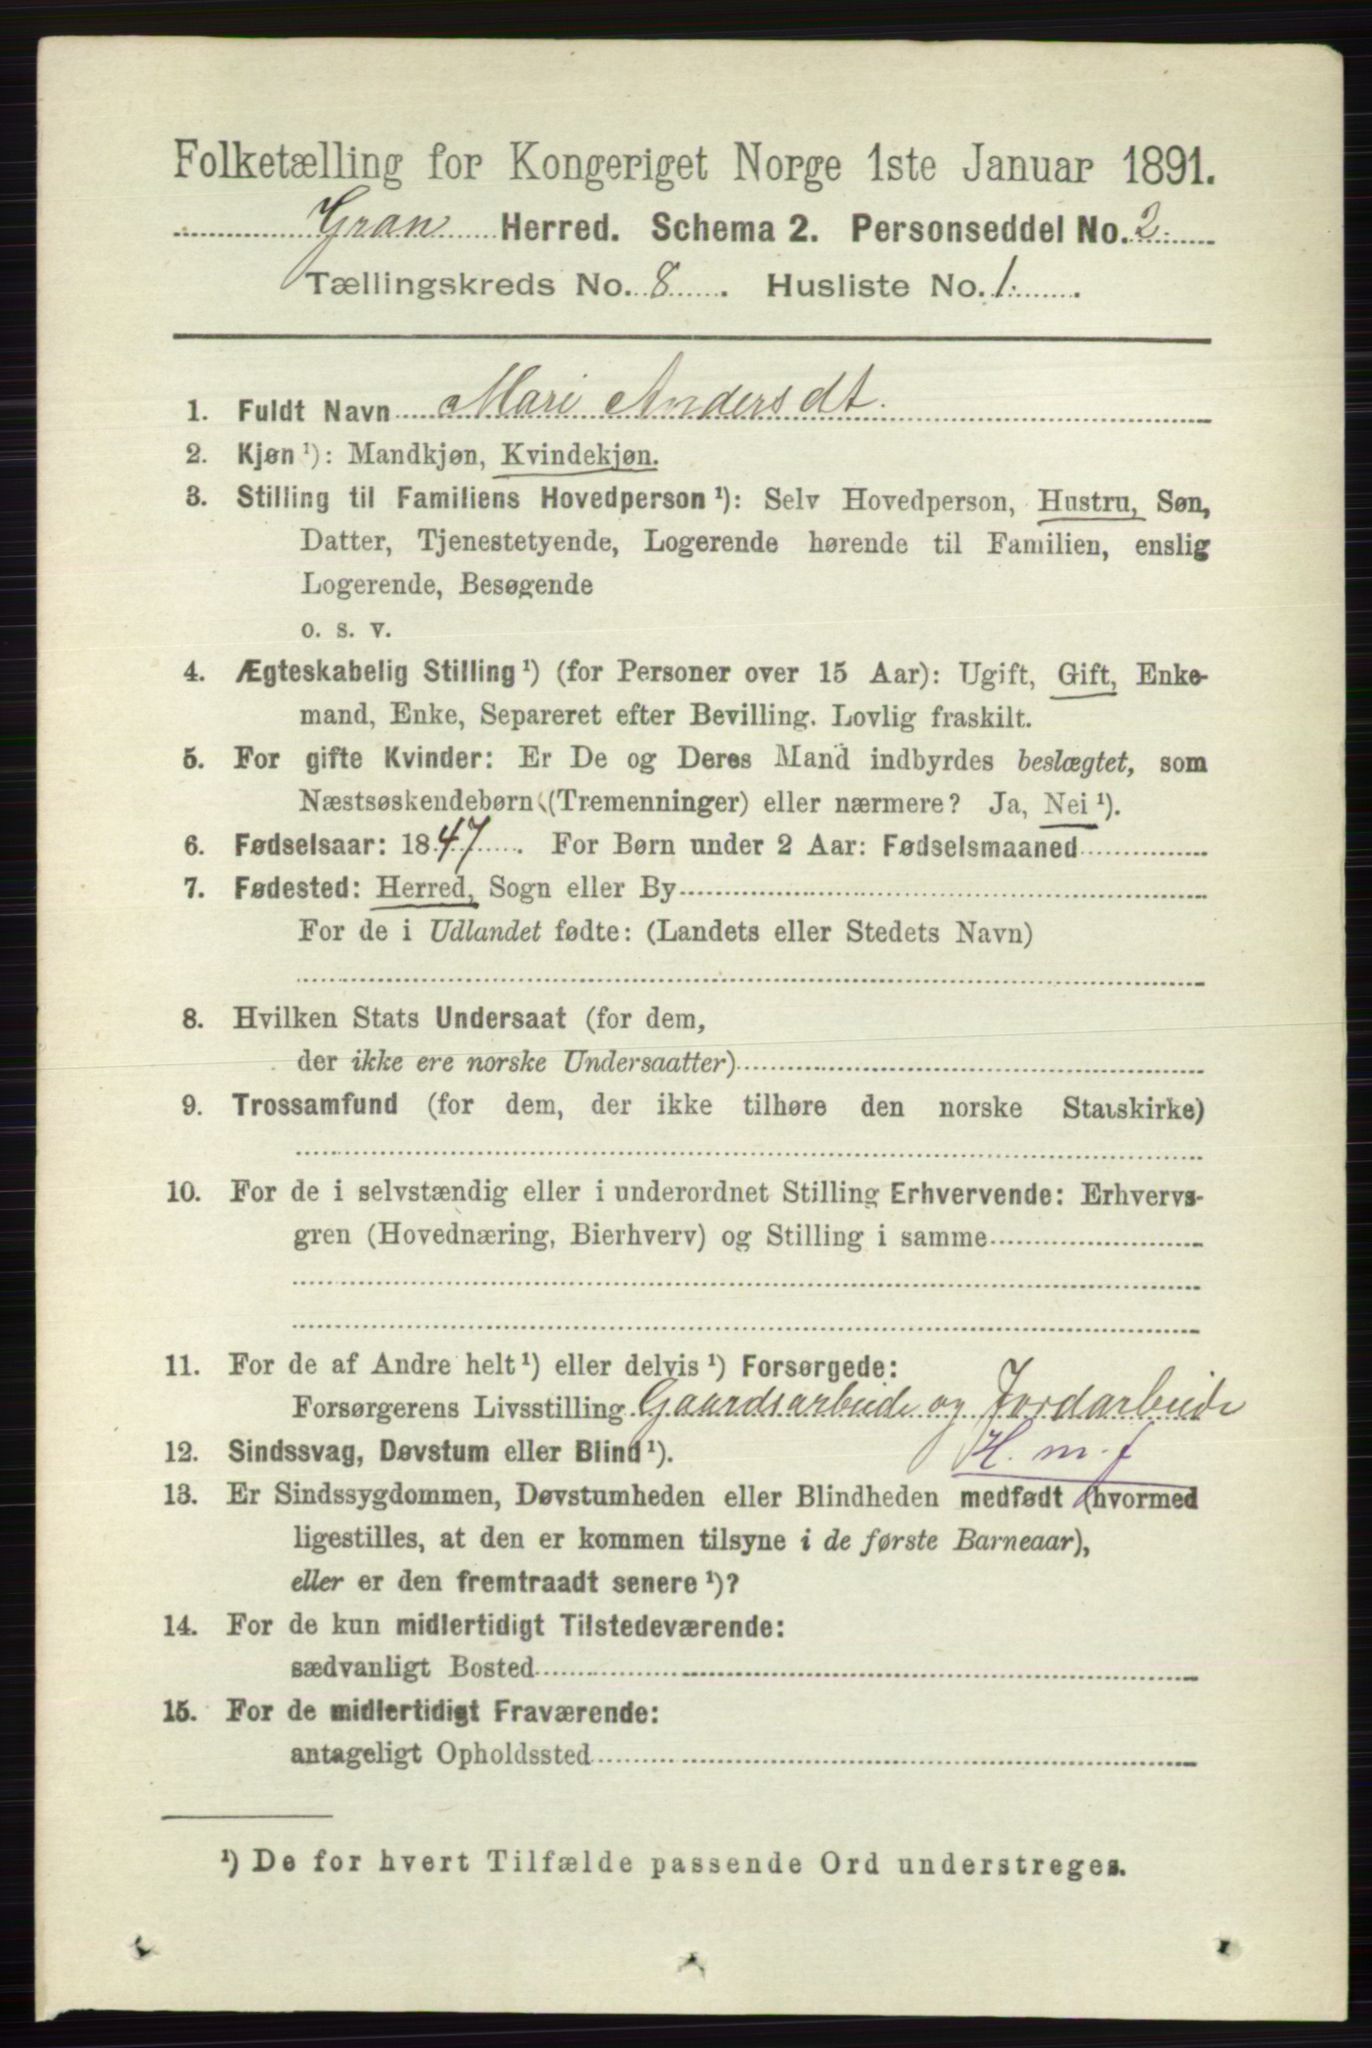 Folketælling for Kongeriget Norge 1ste Januar 1891.
Gran Herred. Schema 2. Personseddel No. 2.
Tællingskreds No. 8 . Husliste No. 1. .
1. Fuldt Navn Mari Andersdt.
2. Kjøn ¹): Mandkjøn, Kvindekjøn.
3. Stilling til Familiens Hovedperson ¹): Selv Hovedperson, Hustru, Søn,
Datter, Tjenestetyende, Logerende hørende til Familien, enslig
Logerende, Besøgende
o. s. v.
4. Ægteskabelig Stilling ¹) (for Personer over 15 Aar): Ugift, Gift, Enke-
mand, Enke, Separeret efter Bevilling. Lovlig fraskilt.
5. For gifte Kvinder: Er De og Deres Mand indbyrdes beslægtet, som
Næstsøskendebørn (Tremenninger) eller nærmere? Ja, Nei ¹).
6. Fødselsaar: 1847 . For Børn under 2 Aar: Fødselsmaaned
7. Fødested: Herred, Sogn eller By
For de i Udlandet fødte: (Landets eller Stedets Navn)
8. Hvilken Stats Undersaat (for dem,
der ikke ere norske Undersaatter)
9. Trossamfund (for dem, der ikke tilhøre den norske Statskirke)
10. For de i selvstændig eller i underordnet Stilling Erhvervende: Erhvervs-
gren (Hovednæring, Bierhverv) og Stilling i samme
11. For de af Andre helt ¹) eller delvis ¹) Forsørgede:
Forsørgerens Livsstilling Gaardsarbeide og Jordarbeide
12. Sindssvag, Døvstum eller Blind ¹). H. m. f
13. Er Sindssygdommen, Døvstumheden eller Blindheden medfødt (hvormed
ligestilles, at den er kommen tilsyne i de første Barneaar),
eller er den fremtraadt senere ¹)?
14. For de kun midlertidigt Tilstedeværende:
sædvanligt Bosted
15. For de midlertidigt Fraværende:
antageligt Opholdssted
¹) De for hvert Tilfælde passende Ord understreges.